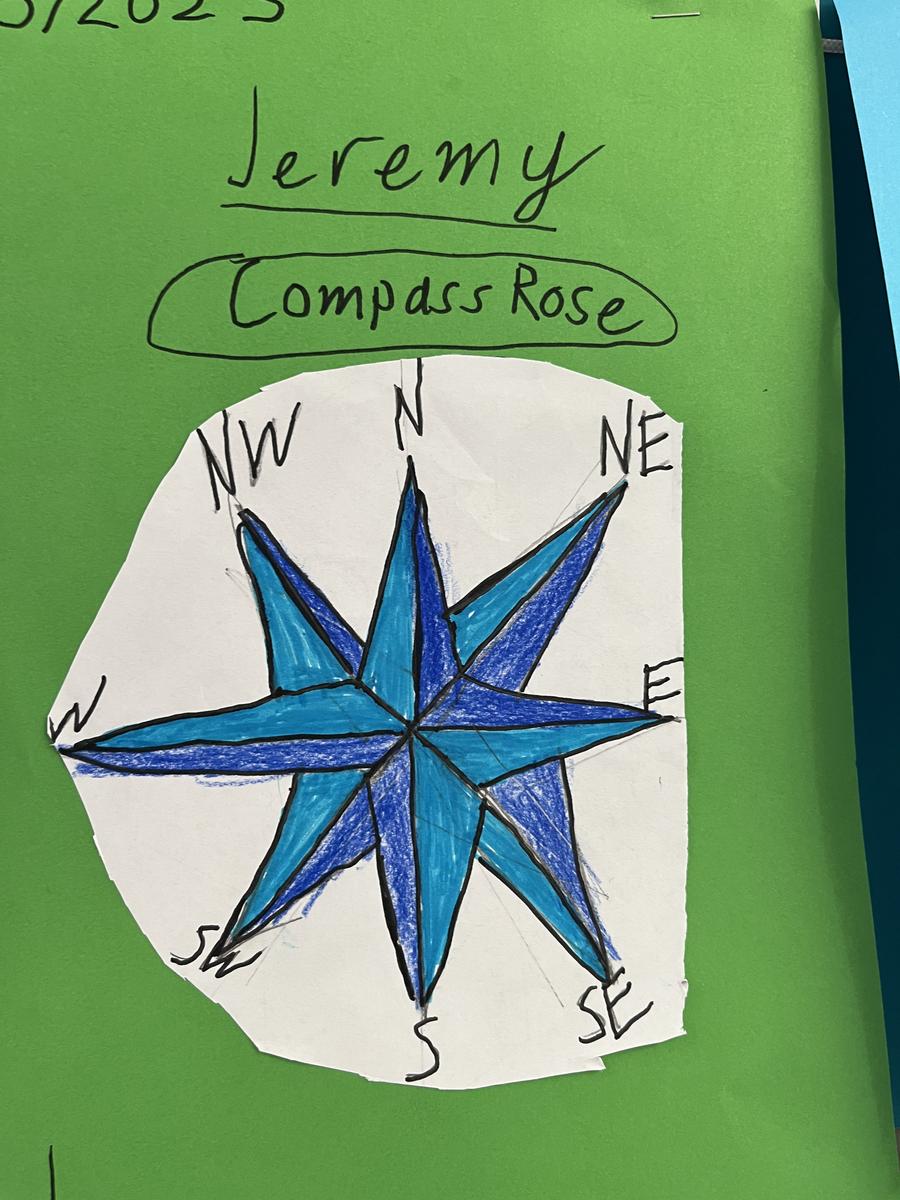 5/2023
Jeremy
Compass Rose
N
NW NE
W E
SW SE
S